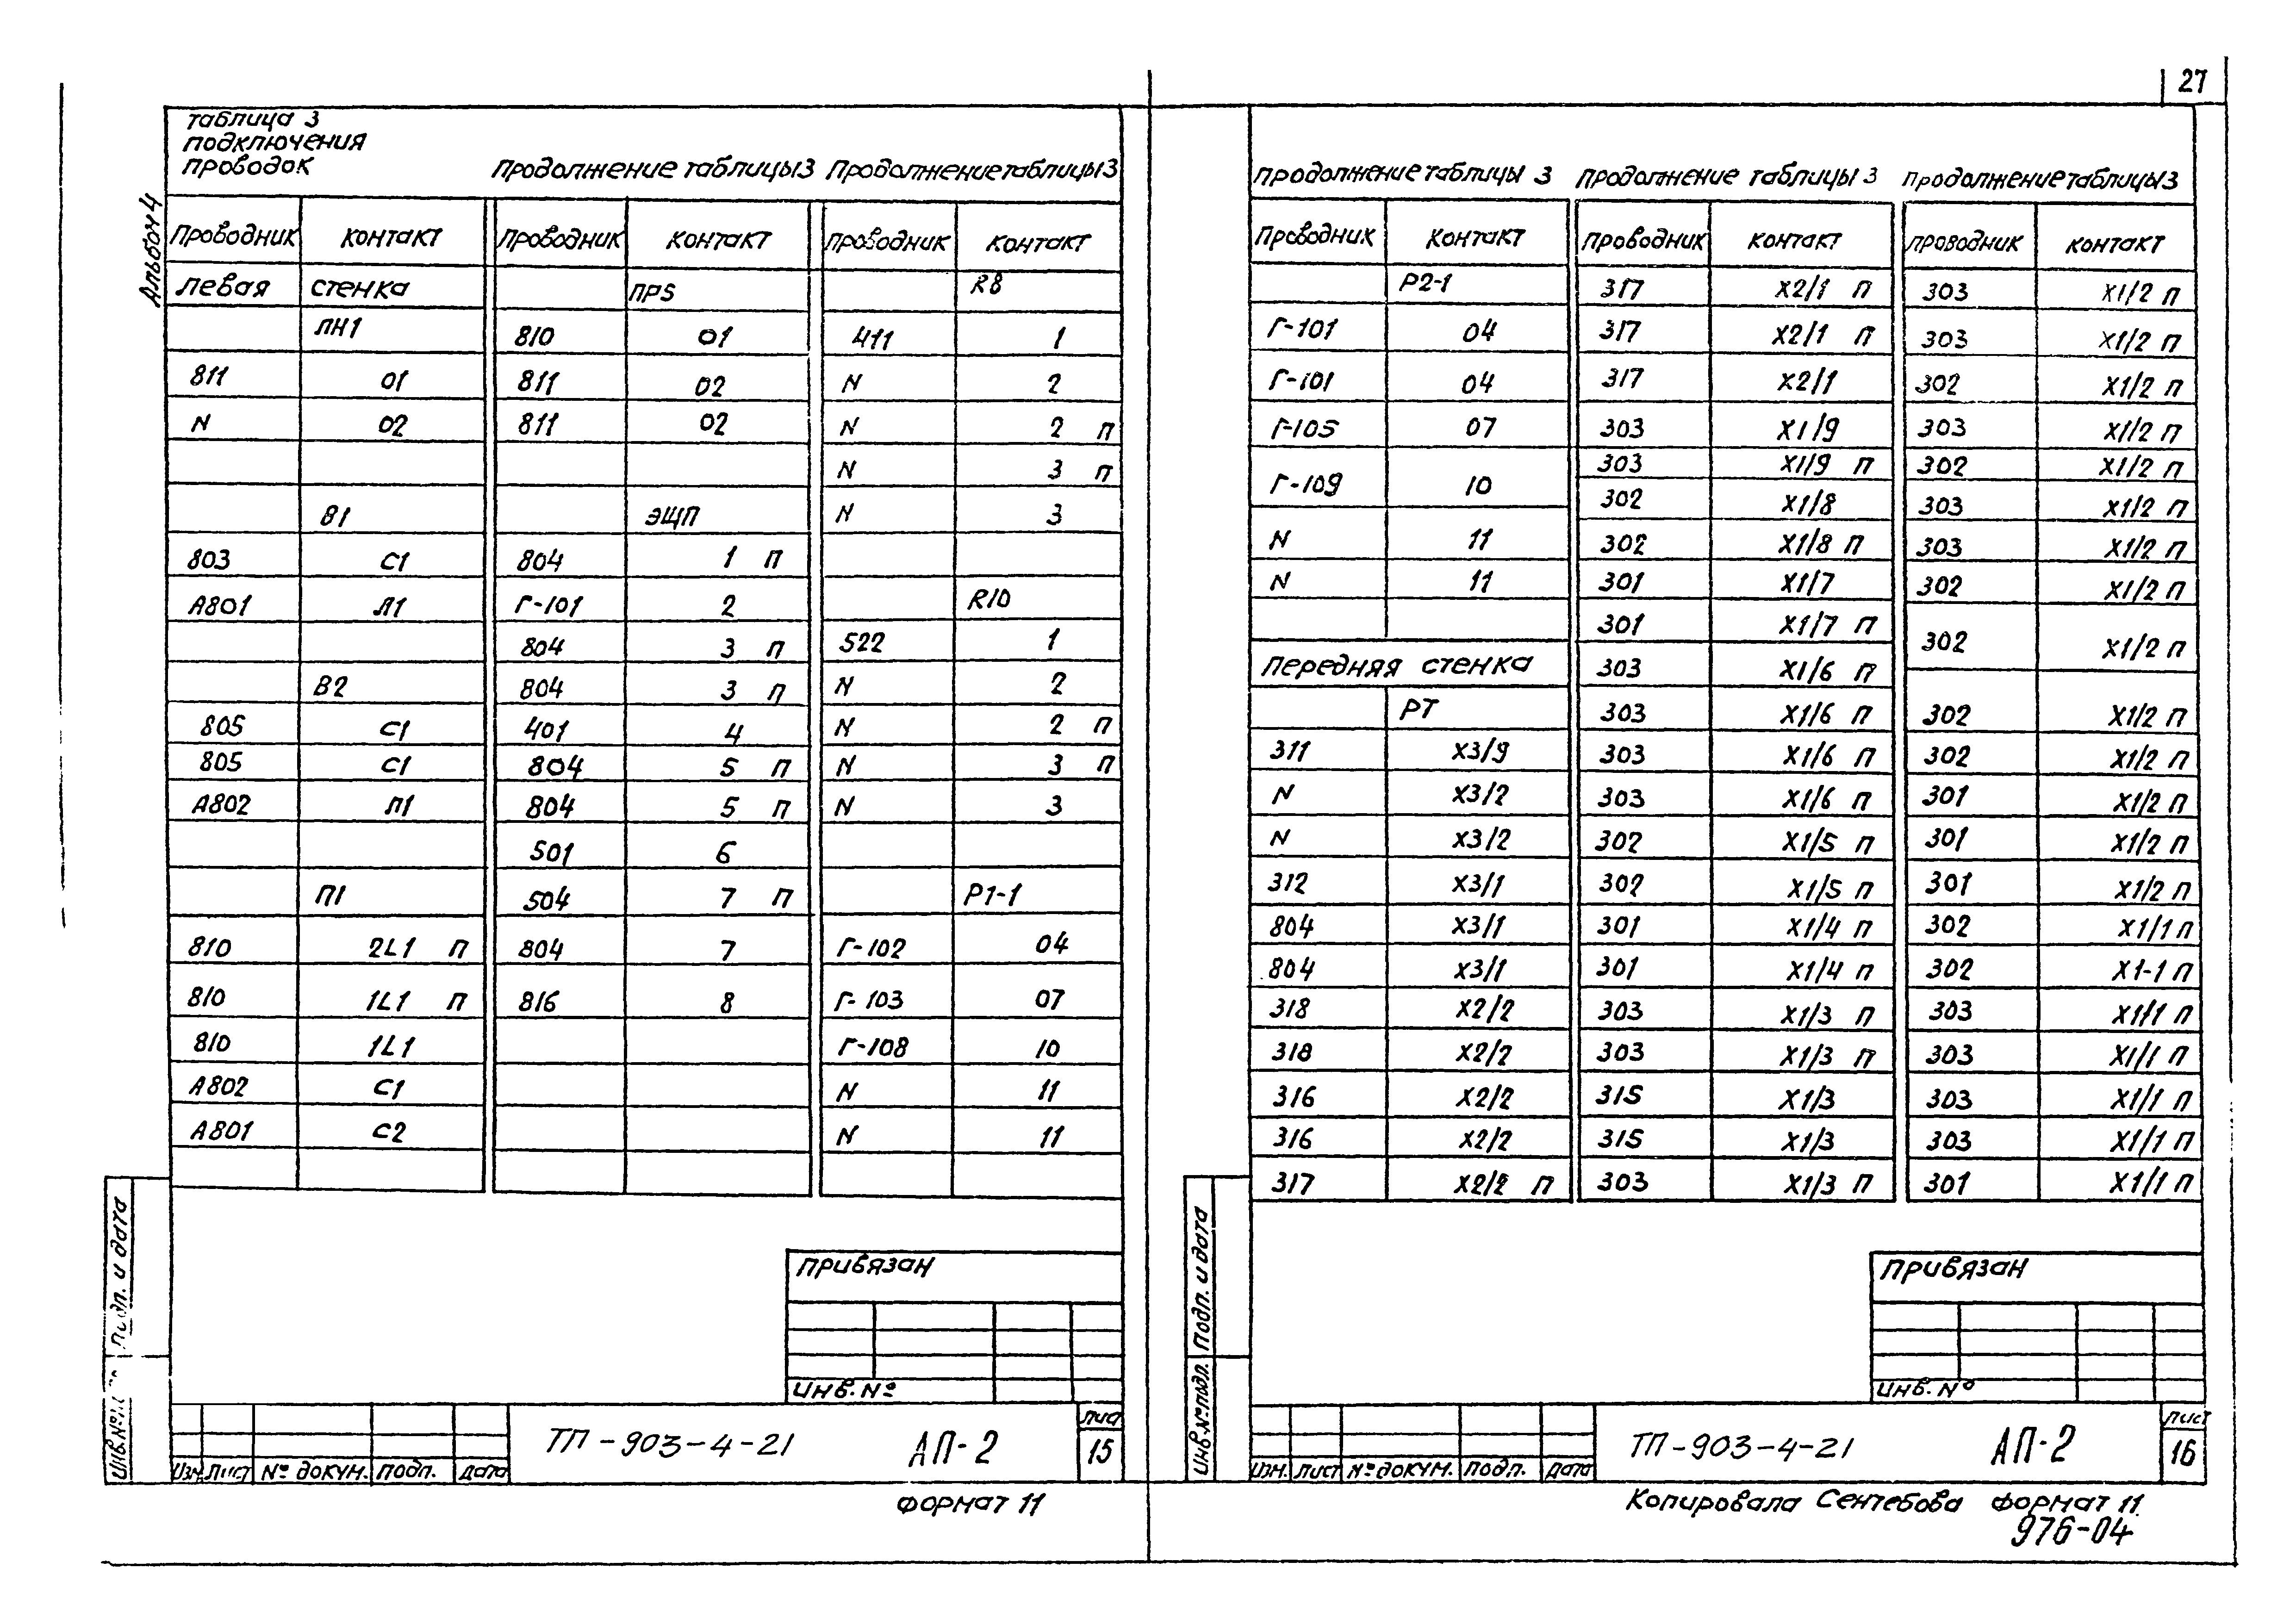 27
Альбом 4
таблица 3
подключения
проводок
Проводник контакт
левая стенка
ЛН1
811 01
N 02
В1
803 С1
А801 Л1
В2
805 С1
805 С1
А802 Л1
П1
810 2L1 П
810 1L1 П
810 1L1
А802 С1
А801 С2
Продолжение таблицы 3
Проводник контакт
ПР5
810 01
811 02
811 02
ЭЩП
804 1 П
Г-101 2
804 3 П
804 3 П
401 4
804 5 П
804 5 П
501 6
504 7 П
804 7
816 8
Продолжение таблицы 3
Проводник контакт
R8
411 1
N 2
N 2 П
N 3 П
N 3
R10
522 1
N 2
N 2 П
N 3 П
N 3
Р1-1
Г-102 04
Г-103 07
Г-108 10
N 11
N 11
Подп. и дата
привязан
инв. №
Изм. Лист № докум. подп. дата
ТП-903-4-21
АП-2
15
формат 11
Продолжение таблицы 3
Проводник контакт
Р2-1
Г-101 04
Г-101 04
Г-105 07
Г-109 10
N 11
N 11
передняя стенка
РТ
311 Х3/9
N Х3/2
N Х3/2
312 Х3/1
804 Х3/1
804 Х3/1
318 Х2/2
318 Х2/2
316 Х2/2
316 Х2/2
317 Х2/2 П
Продолжение таблицы 3
Проводник контакт
317 Х2/1 П
317 Х2/1 П
317 Х2/1
303 Х1/9
303 Х1/9 П
302 Х1/8
302 Х1/8 П
301 Х1/7
301 Х1/7 П
303 Х1/6 П
303 Х1/6 П
303 Х1/6 П
303 Х1/6 П
302 Х1/5 П
302 Х1/5 П
301 Х1/4 П
301 Х1/4 П
303 Х1/3 П
303 Х1/3 П
315 Х1/3
315 Х1/3
303 Х1/3 П
Продолжение таблицы 3
проводник контакт
303 Х1/2 П
303 Х1/2 П
302 Х1/2 П
303 Х1/2 П
302 Х1/2 П
303 Х1/2 П
303 Х1/2 П
302 Х1/2 П
302 Х1/2 П
302 Х1/2 П
302 Х1/2 П
301 Х1/2 П
301 Х1/2 П
301 Х1/2 П
302 Х1/1 П
302 Х1-1 П
303 Х1/1 П
303 Х1/1 П
303 Х1/1 П
303 Х1/1 П
301 Х1/1 П
Инв. № подл. Подп. и дата
привязан
инв. №
Изм. лист № докум. подп. дата
ТП-903-4-21
АП-2
лист
16
Копировала Сентебова формат 11
976-04